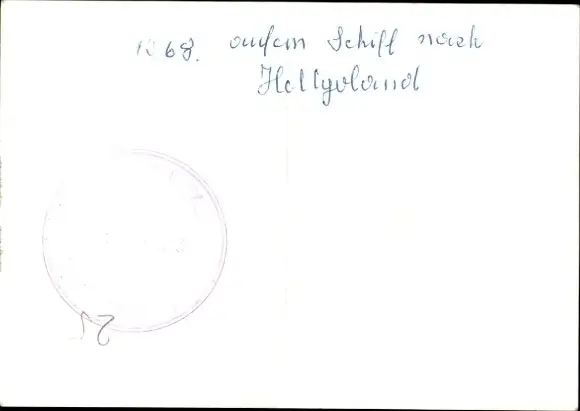 1968. aufem Schiff nach
Hellgoland